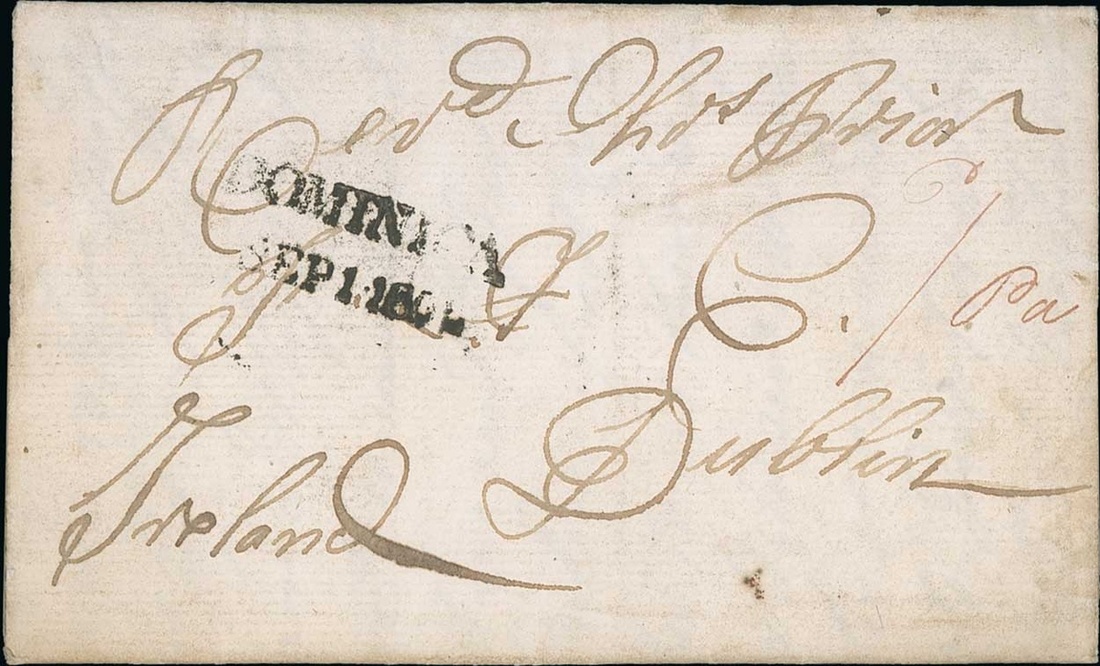 Revd. Thos Prior
DOMINICA
SEP 1 18
F. T. C.
Pa
Dublin
Ireland